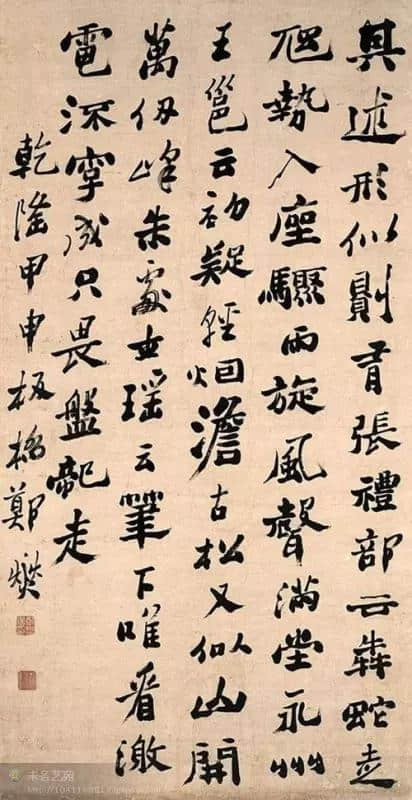 其述形似則有張禮部云奔蛇走
虺勢入座驟雨旋風聲滿堂永州
王邕云初疑輕烟澹古松又似山開
萬仞峰朱處士瑶云筆下唯看激
電流字成只畏盤龍走
乾隆甲申板橋鄭燮